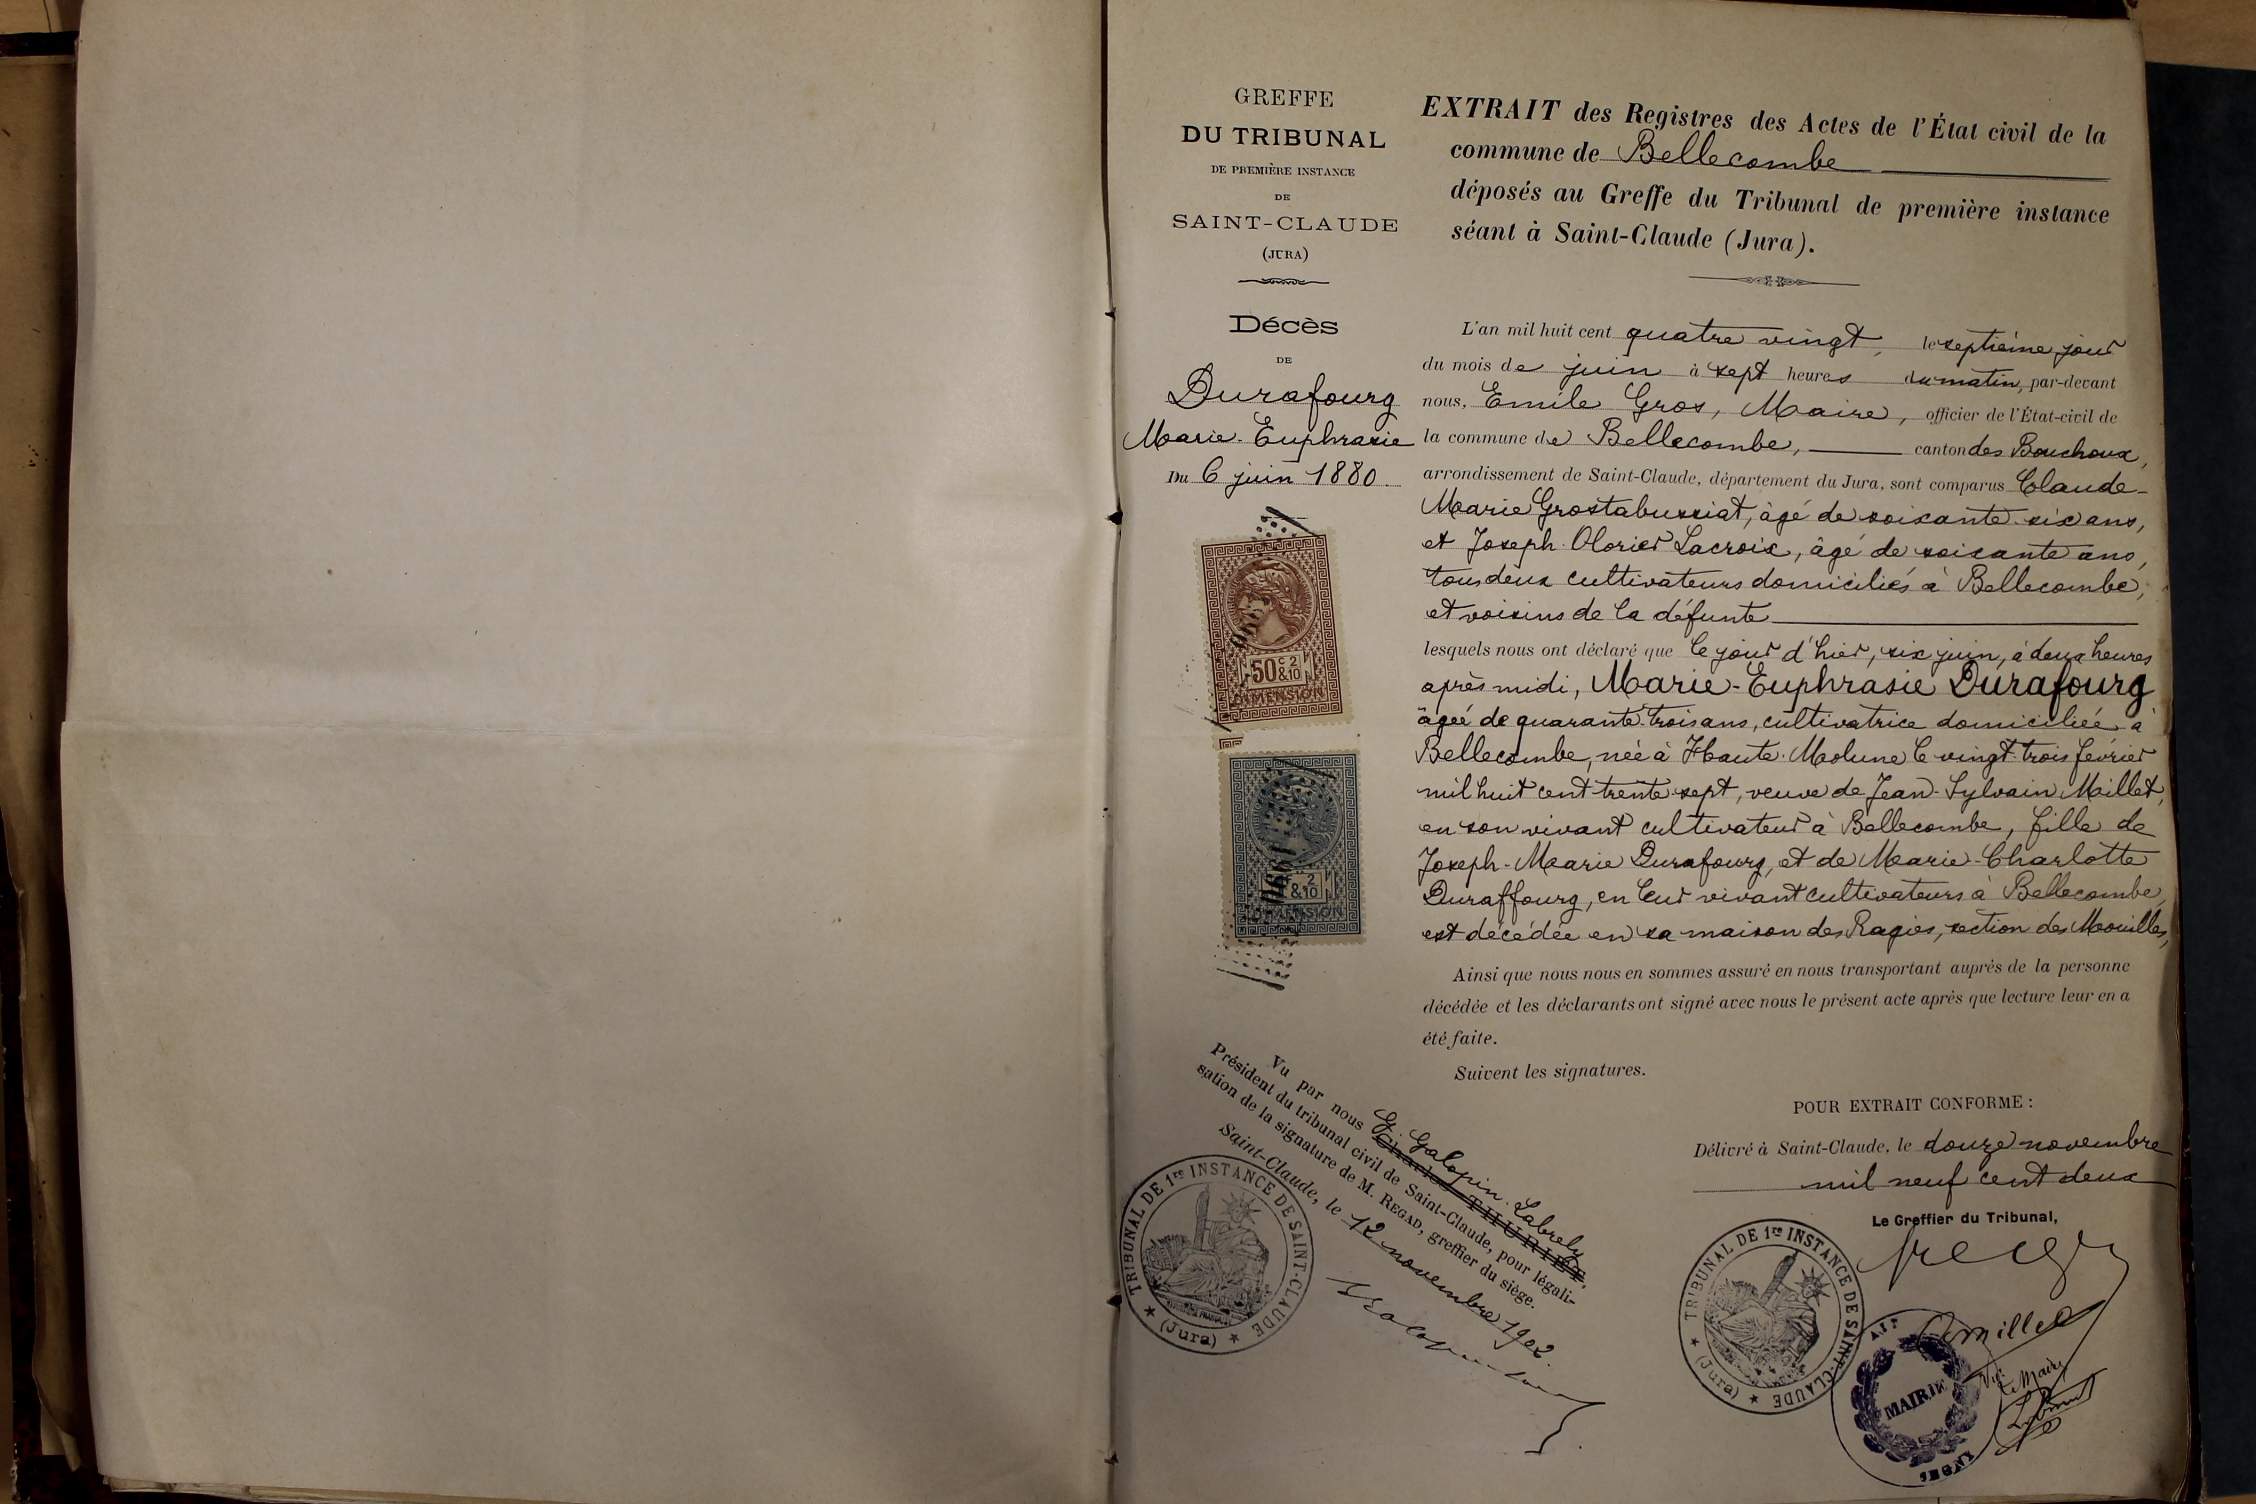 GREFFE
DU TRIBUNAL
DE PREMIÈRE INSTANCE
DE
SAINT-CLAUDE
(JURA)
Décès
DE
Durafourg
Marie-Euphrasie
Du 6 juin 1880.
50c 2
&10
DIMENSION
2
&10
DIMENSION
EXTRAIT des Registres des Actes de l'État civil de la
commune de Bellecombe
déposés au Greffe du Tribunal de première instance
séant à Saint-Claude (Jura).
L'an mil huit cent quatre vingt, le septième jour
du mois de juin à sept heures du matin, par-devant
nous, Emile Gros, Maire, officier de l'État-civil de
la commune de Bellecombe, canton des Bouchoux,
arrondissement de Saint-Claude, département du Jura, sont comparus Claude-
Marie Grostabussiat, âgé de soixante-six ans,
et Joseph Olorier Lacroix, âgé de soixante ans,
tous deux cultivateurs domiciliés à Bellecombe,
et voisins de la défunte
lesquels nous ont déclaré que le jour d'hier, six juin, à deux heures
après midi, Marie-Euphrasie Durafourg
âgée de quarante-trois ans, cultivatrice domiciliée à
Bellecombe, née à Haute-Molune le vingt-trois février
mil huit cent trente-sept, veuve de Jean-Sylvain Maillet,
en son vivant cultivateur à Bellecombe, fille de
Joseph-Marie Durafourg, et de Marie-Charlotte
Duraffourg, en leur vivant cultivateurs à Bellecombe,
est décédée en sa maison des Ragies, section des Mouilles,
Ainsi que nous nous en sommes assuré en nous transportant auprès de la personne
décédée et les déclarants ont signé avec nous le présent acte après que lecture leur en a
été faite.
Suivent les signatures.
POUR EXTRAIT CONFORME :
Délivré à Saint-Claude, le douze novembre
mil neuf cent deux
Le Greffier du Tribunal,
Vu par nous G. Galopin-Labrely
Président du tribunal civil de Saint-Claude, pour légali-
sation de la signature de M. REGAD, greffier du siège.
Saint-Claude, le 12 novembre 1902.
TRIBUNAL DE 1re INSTANCE DE SAINT-CLAUDE
(Jura)
TRIBUNAL DE 1re INSTANCE DE SAINT-CLAUDE
(Jura)
MAIRIE
Vu
Le Maire